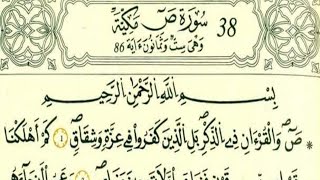 سُورَةُ صٓ مَكِّيَّةٌ 38
وَهِيَ سِتٌّ وَثَمَانُونَ ءَايَةً 86
بِسْمِ اللَّهِ الرَّحْمَٰنِ الرَّحِيمِ
صٓ وَالْقُرْءَانِ ذِے الذِّكْرِ بَلِ الذِينَ كَفَرُواْ فِے عِزَّةٍ وَشِقَاقٍ ١ كَمَ اَهْلَكْنَا